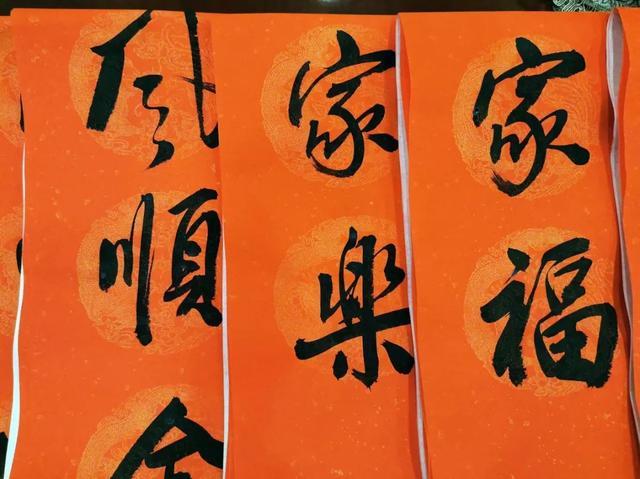 家福
家樂
風順